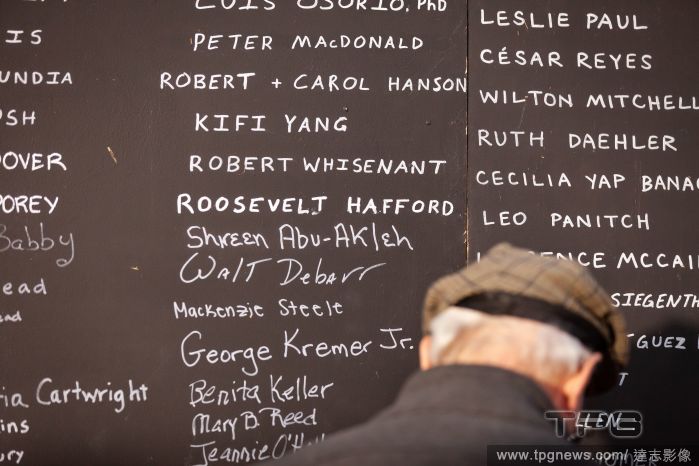 LUIS OSORIO, PhD
PETER MACDONALD
ROBERT + CAROL HANSON
KIFI YANG
ROBERT WHISENANT
ROOSEVELT HAFFORD
Shreen Abu-Akleh
Walt Debarr
Mackenzie Steele
George Kremer Jr.
Benita Keller
Mary B. Reed
Jeannie O'H
IS
UNDIA
SH
OVER
OREY
Babby
ead
ead
ia Cartwright
ins
ury
LESLIE PAUL
CÉSAR REYES
WILTON MITCHELL
RUTH DAEHLER
CECILIA YAP BANAG
LEO PANITCH
ENCE MCCAI
SIEGENTH
GUEZ
T
LLEN
TPG
www.tpgnews.com/達志影像